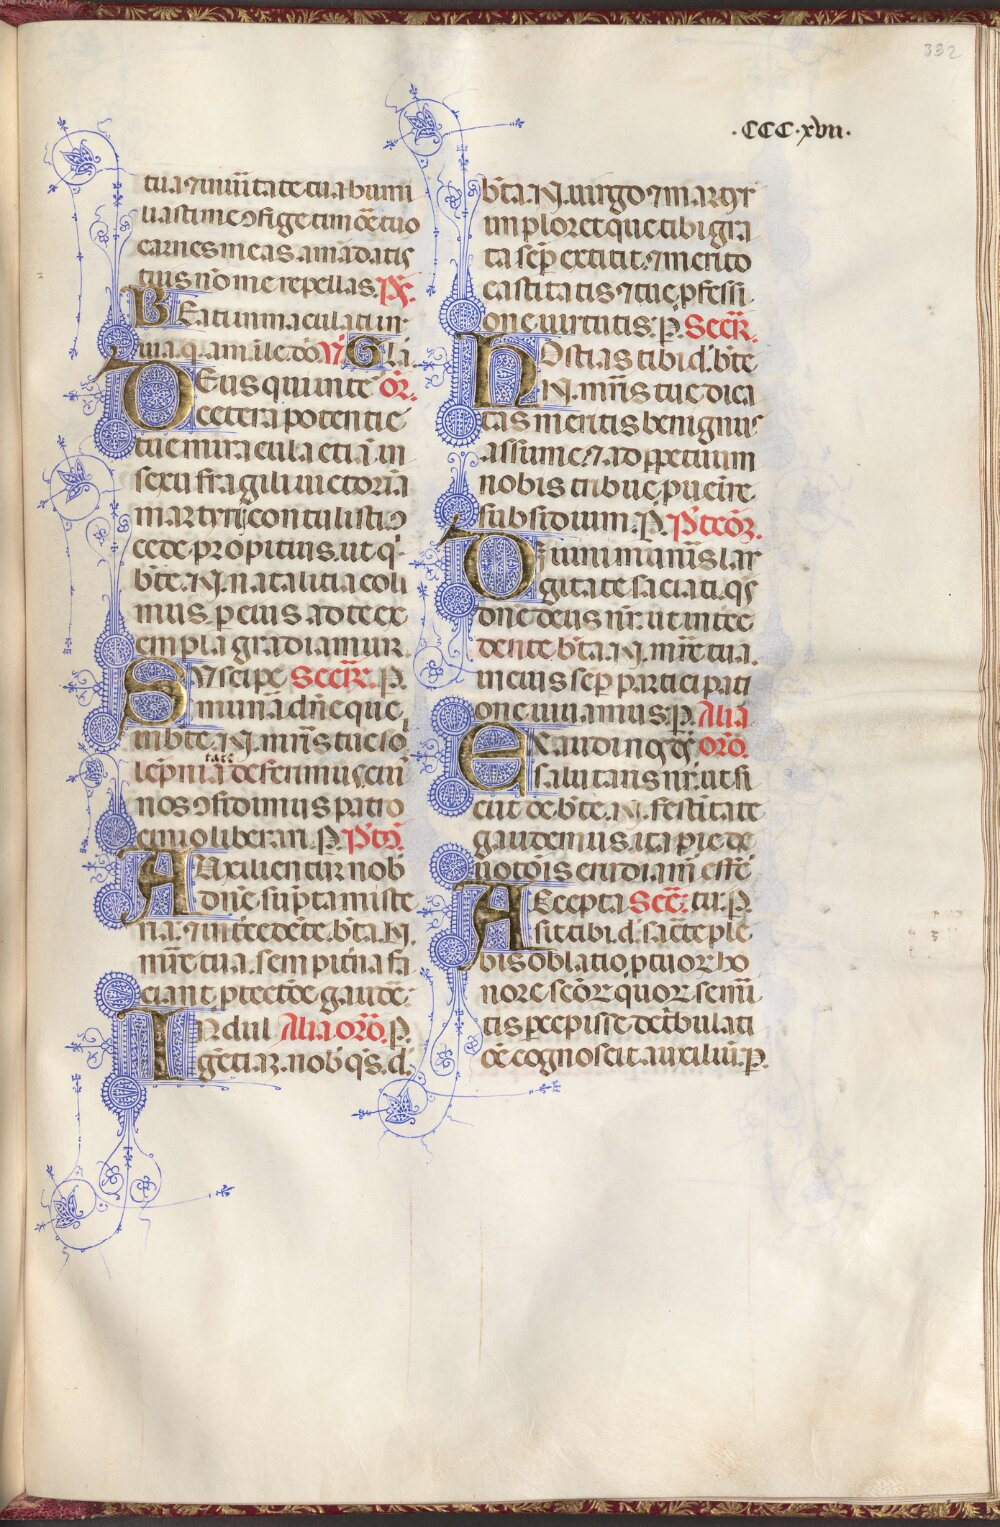 332
·CCC·xvii·
tua ⁊ in ueritate tua humi
liasti me ꝯfige timoꝛe tuo
carnes meas a mãdatis
tuis nõ me repellas. Ps̃.
Beati inmaculati in
uia. q̃ am̃. ĩ le. dõ. V̾. Gl̃a.
Deus qui inte or̃.
r cetera potentie
tue miracula etiã in
sexu fragili uictoriã
martyrij contulisti ꝯ
cede propitius. ut q̃
bt̃e. N. natalitia coli
mus. p eius ad te ex
empla gradiamur.
Suscipe Secr̃. P.
munã dñe que
in bt̃e. N. mr̃is tue so
lẽpnitate deferimus. cuiꝰ
nos ꝯfidimus patro
cinio liberari. P. P̾cõ.
Auxilientur nob̃
dñe sũpta miste
ria. ⁊ intcedẽte. bt̃a. N.
mr̃e tua. sempitña fa
ciant ꝓtectõe gaude͛.
Indul Alia or̃o. P.
gẽtiaꝫ. nob̃ q̃s. d̃.
bt̃a N. uirgo ⁊ martyr
imploret que tibi gra
ta sep̃ extitit. ⁊ merito
castitatis ⁊ tue ꝓfessi
one uirtutis. P. Secr̃.
Hostias tibi d̃. bt̃e
N. mr̃is tue dica
tas meritis benignus
assume. ⁊ ad ꝑpetuum
nobis tribue ꝓuenire
subsidium. P. P̾tcõꝫ.
Diuini mun̾is lar
gitate saciati. q̃s
dñe deus nr̃. ut intce
dente bt̃a N. mr̃e tua.
in eius sep̃ participati
one uiuamus. P. Alia
Exaudi nos d̾s or̃o.
salutaris nr̃. ut si
cut de bt̃e. N. festiuitate
gaudemus. ita pie de
uotõis erudiam̃ effc̃u.
Accepta Secr̃. tu. P.
sit tibi. d̃. sacr̃e ple
bis oblatio ꝓ tuoꝝ ho
nore scõꝝ quoꝝ se meri
tis ꝑcepisse de tribulati
oẽ cognoscit auxiliũ. P.